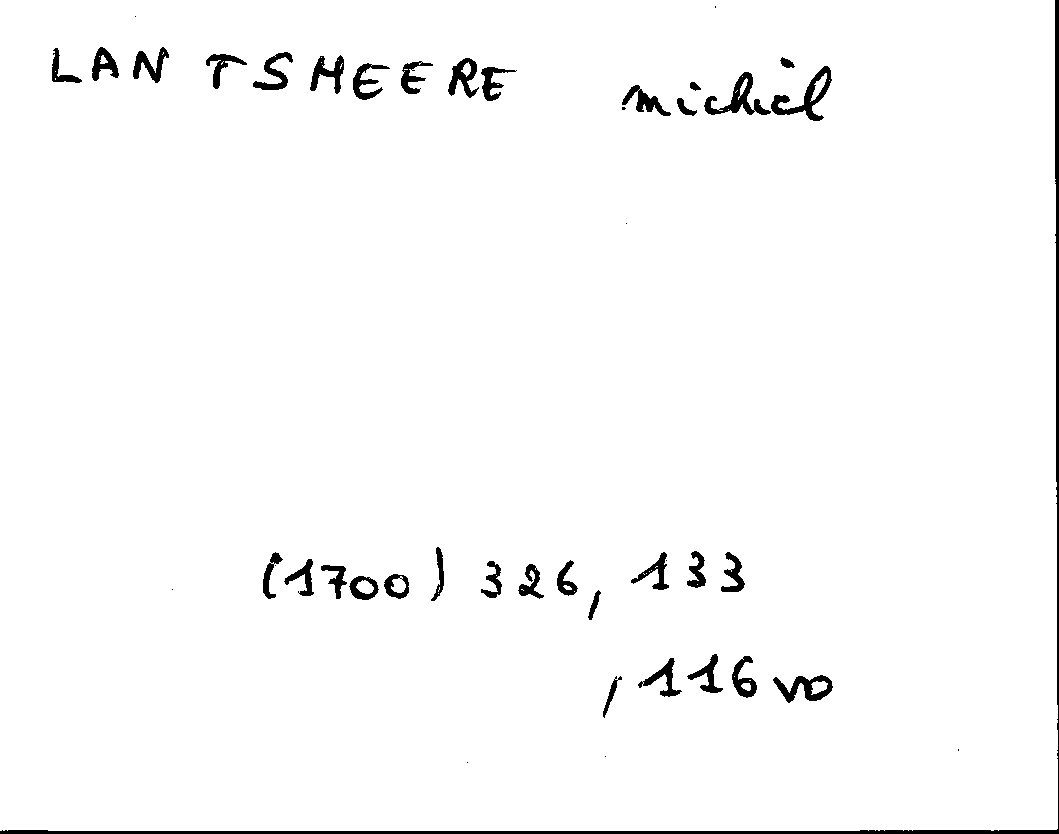 LANTSHEERE michiel
(1700) 326, 133
, 116 vo